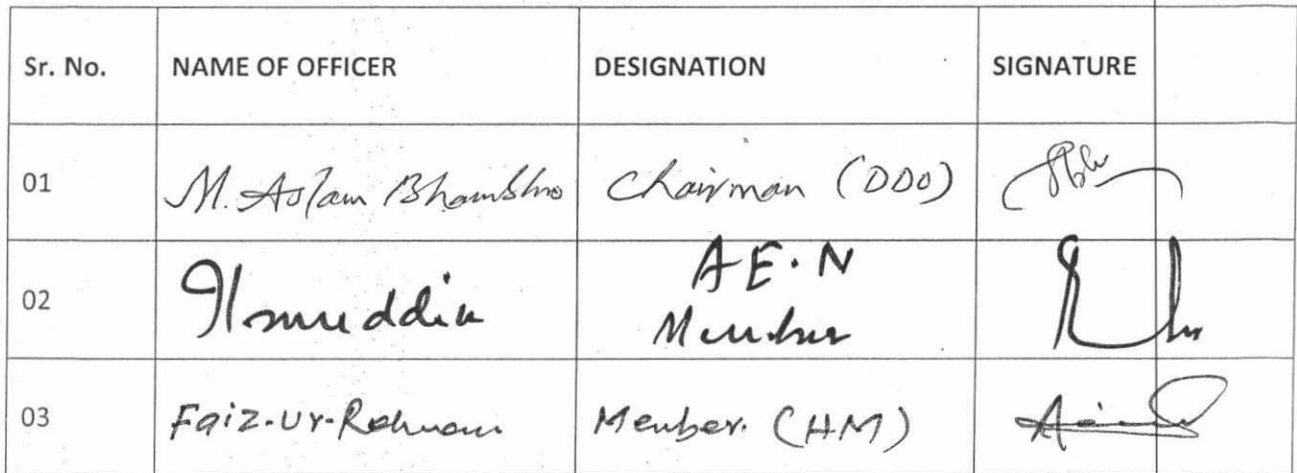 Sr. No. NAME OF OFFICER DESIGNATION SIGNATURE
01 M. Aslam Bhambhro Chairman (DDO)
02 A E. N
Member
03 Faiz-ur-Rehman Member. (HM)